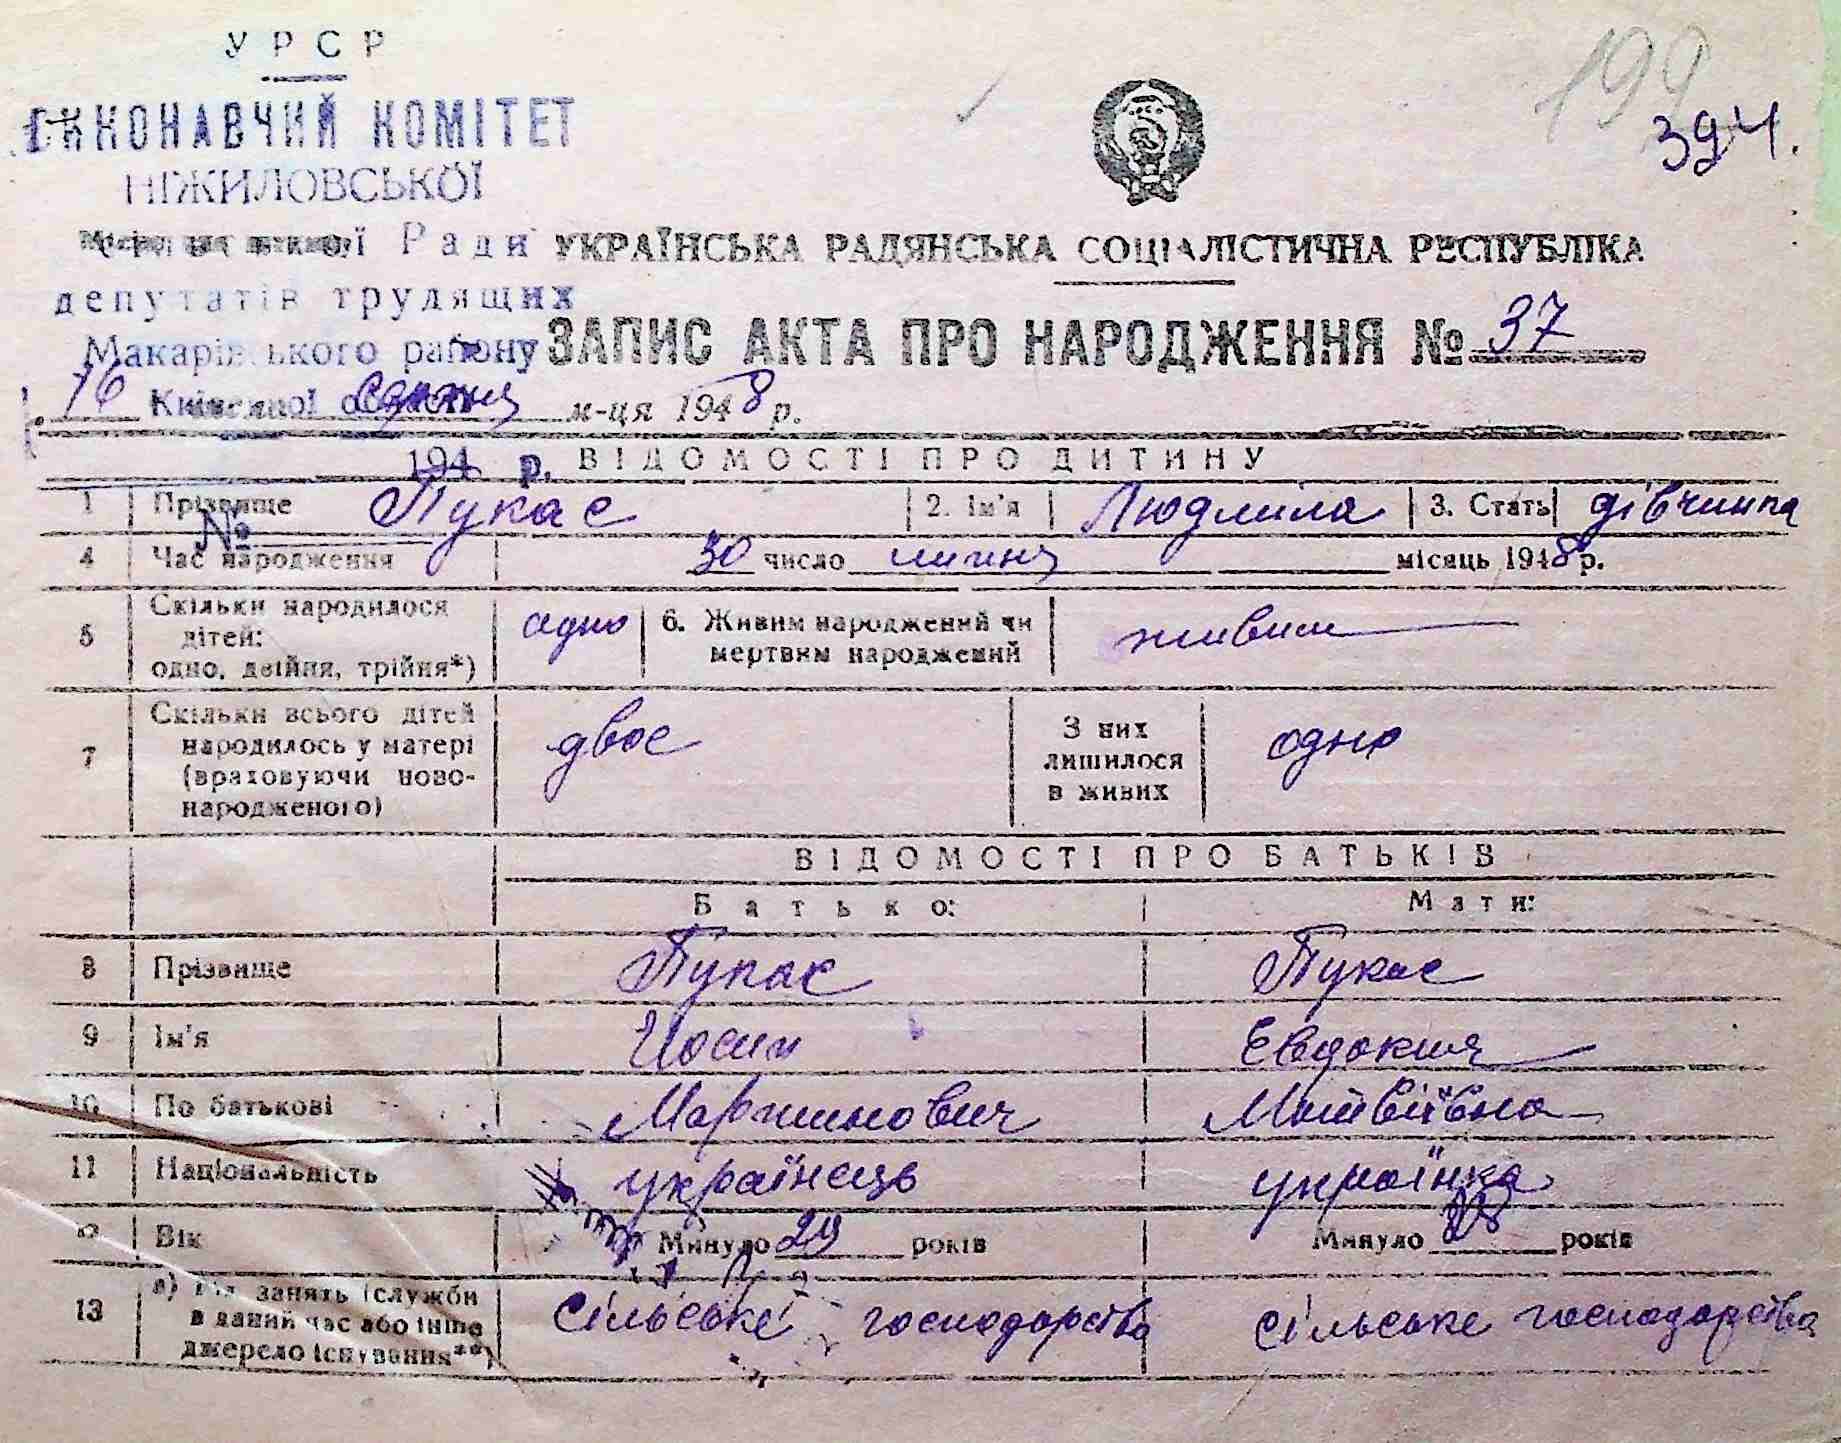 УРСР
ВИКОНАВЧИЙ КОМІТЕТ
НІЖИЛОВСЬКОЇ
Ради
депутатів трудящих
Макарівського району
Київської області
194 р.
№
199
394.
УКРАЇНСЬКА РАДЯНСЬКА СОЦІАЛІСТИЧНА РЕСПУБЛІКА
ЗАПИС АКТА ПРО НАРОДЖЕННЯ № 37
16 серпня м-ця 1948 р.
ВІДОМОСТІ ПРО ДИТИНУ
1 Прізвище Пукас 2. Ім'я Людмила 3. Стать дівчинка
4 Час народження 30 число липня місяць 1948 р.
5 Скільки народилося дітей: одно, двійня, трійня*) одно 6. Живим народжений чи мертвим народжений живим
7 Скільки всього дітей народилось у матері (враховуючи новонародженого) двоє З них лишилося в живих одно
ВІДОМОСТІ ПРО БАТЬКІВ
Батько: Мати:
8 Прізвище Пукас Пукас
9 Ім'я Йосип Евдокия
10 По батькові Мартинович Матвіївна
11 Національність українець українка
12 Вік Минуло 29 років Минуло років
13 а) Рід занять (служби в даний час або інше джерело існування**) Сільське господарства сільське господарства